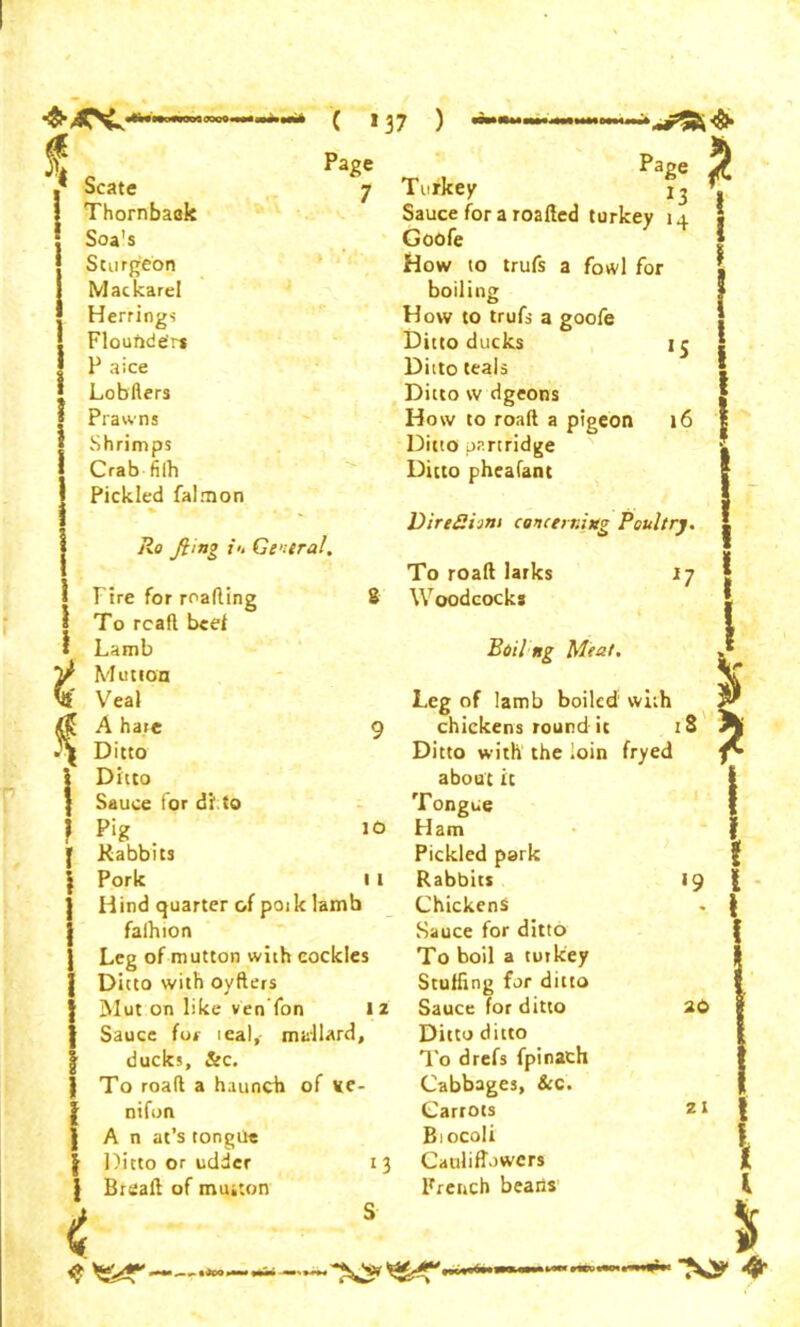 ( 137 )
Page
Scate 7
Thornback
Soa's
Sturgeon
Mackarel
Herrings
Flounders
P aice
Lobſters
Prawns
Shrimps
Crab fiſh
Pickled ſalmon
Ro ſting in General.
Fire for roaſting 8
To roaſt beef
Lamb
Mutton
Veal
A hare 9
Ditto
Ditto
Sauce for ditto
Pig 10
Rabbits
Pork 11
Hind quarter of pork lamb
faſhion
Leg of mutton with cockles
Ditto with oyſters
Mut on like ven ſon 12
Sauce for teal, mallard,
ducks, &c.
To roaſt a haunch of ve-
niſon
A n at's tongue
Ditto or udder 13
Breaſt of mutton
S
Page
Turkey 13
Sauce for a roaſted turkey 14
Gooſe
How to truſs a fowl for
boiling
How to truſs a gooſe
Ditto ducks 15
Ditto teals
Ditto w dgeons
How to roaſt a pigeon 16
Ditto partridge
Ditto pheaſant
Directions concerning Poultry.
To roaſt larks 17
Woodcocks
Boil ng Meat.
Leg of lamb boiled with
chickens round it 18
Ditto with the loin fryed
about it
Tongue
Ham
Pickled pork
Rabbits 19
Chickens
Sauce for ditto
To boil a turkey
Stuffing for ditto
Sauce for ditto 20
Ditto ditto
To dreſs ſpinach
Cabbages, &c.
Carrots 21
Brocoli
Cauliflowers
French beans